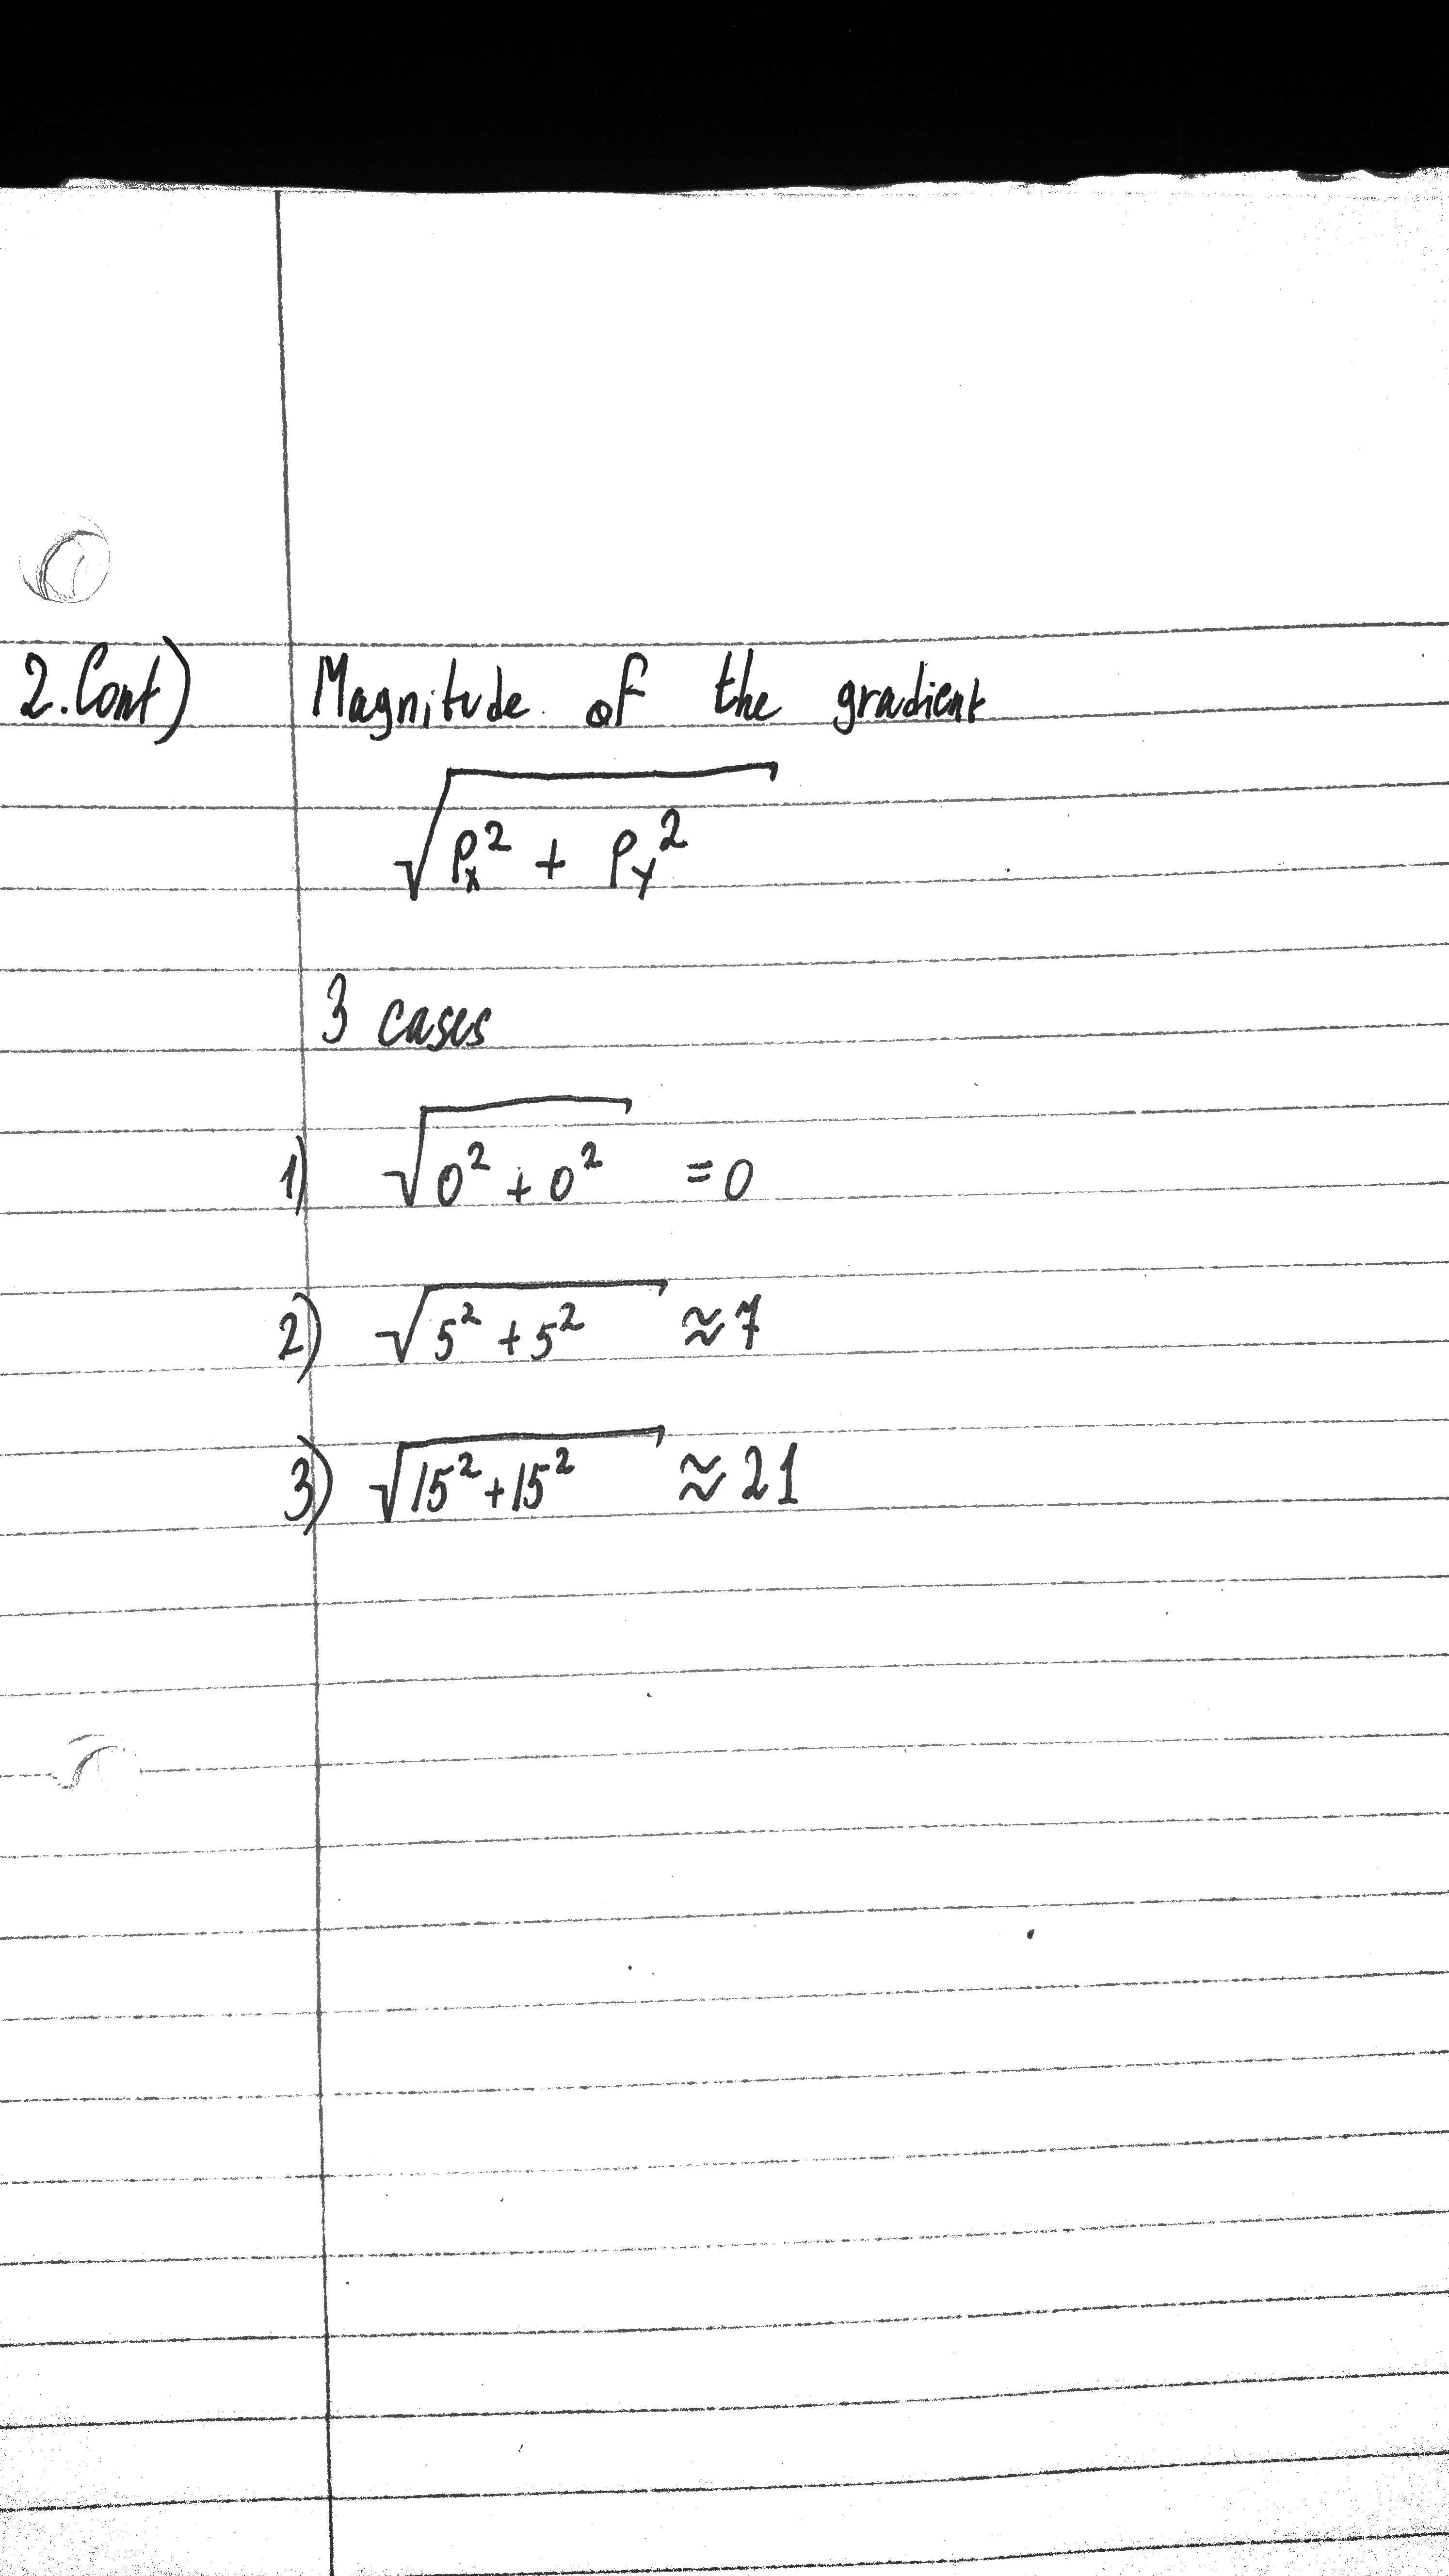 2.Cont) Magnitude of the gradient
√(Px² + Py²)
3 cases
1) √(0² + 0²) = 0
2) √(5² + 5²) ≈ 7
3) √(15² + 15²) ≈ 21